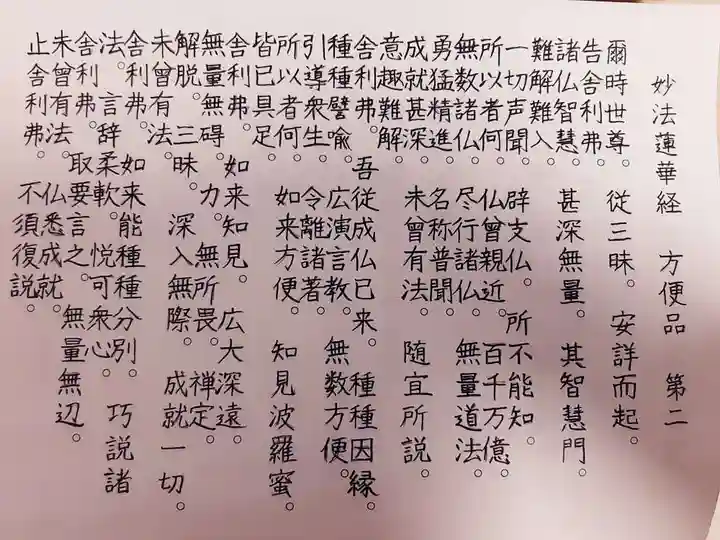 妙法蓮華経　方便品　第二
爾時世尊。従三昧。安詳而起。
告舎利弗。
諸仏智慧。甚深無量。其智慧門。
難解難入。
一切声聞。辟支仏。所不能知。
所以者何。仏曾親近。百千万億。
無数諸仏。尽行諸仏。無量道法。
勇猛精進。名称普聞。
成就甚深。未曾有法。随宜所説。
意趣難解。
舎利弗。吾従成仏已来。種種因縁。
種種譬喩。広演言教。無数方便。
引導衆生。令離諸著。
所以者何。如来方便。知見波羅蜜。
皆已具足。
舎利弗。如来知見。広大深遠。
無量無碍。力。無所畏。禅定。
解脱。三昧。深入無際。成就一切。
未曾有法。
舎利弗。如来能種種分別。巧説諸
法。言辞柔軟。悦可衆心。
舎利弗。取要言之。無量無辺。
未曾有法。仏悉成就。
止舎利弗。不須復説。